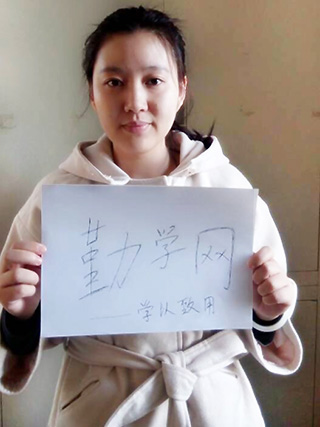 勤学网
——学以致用